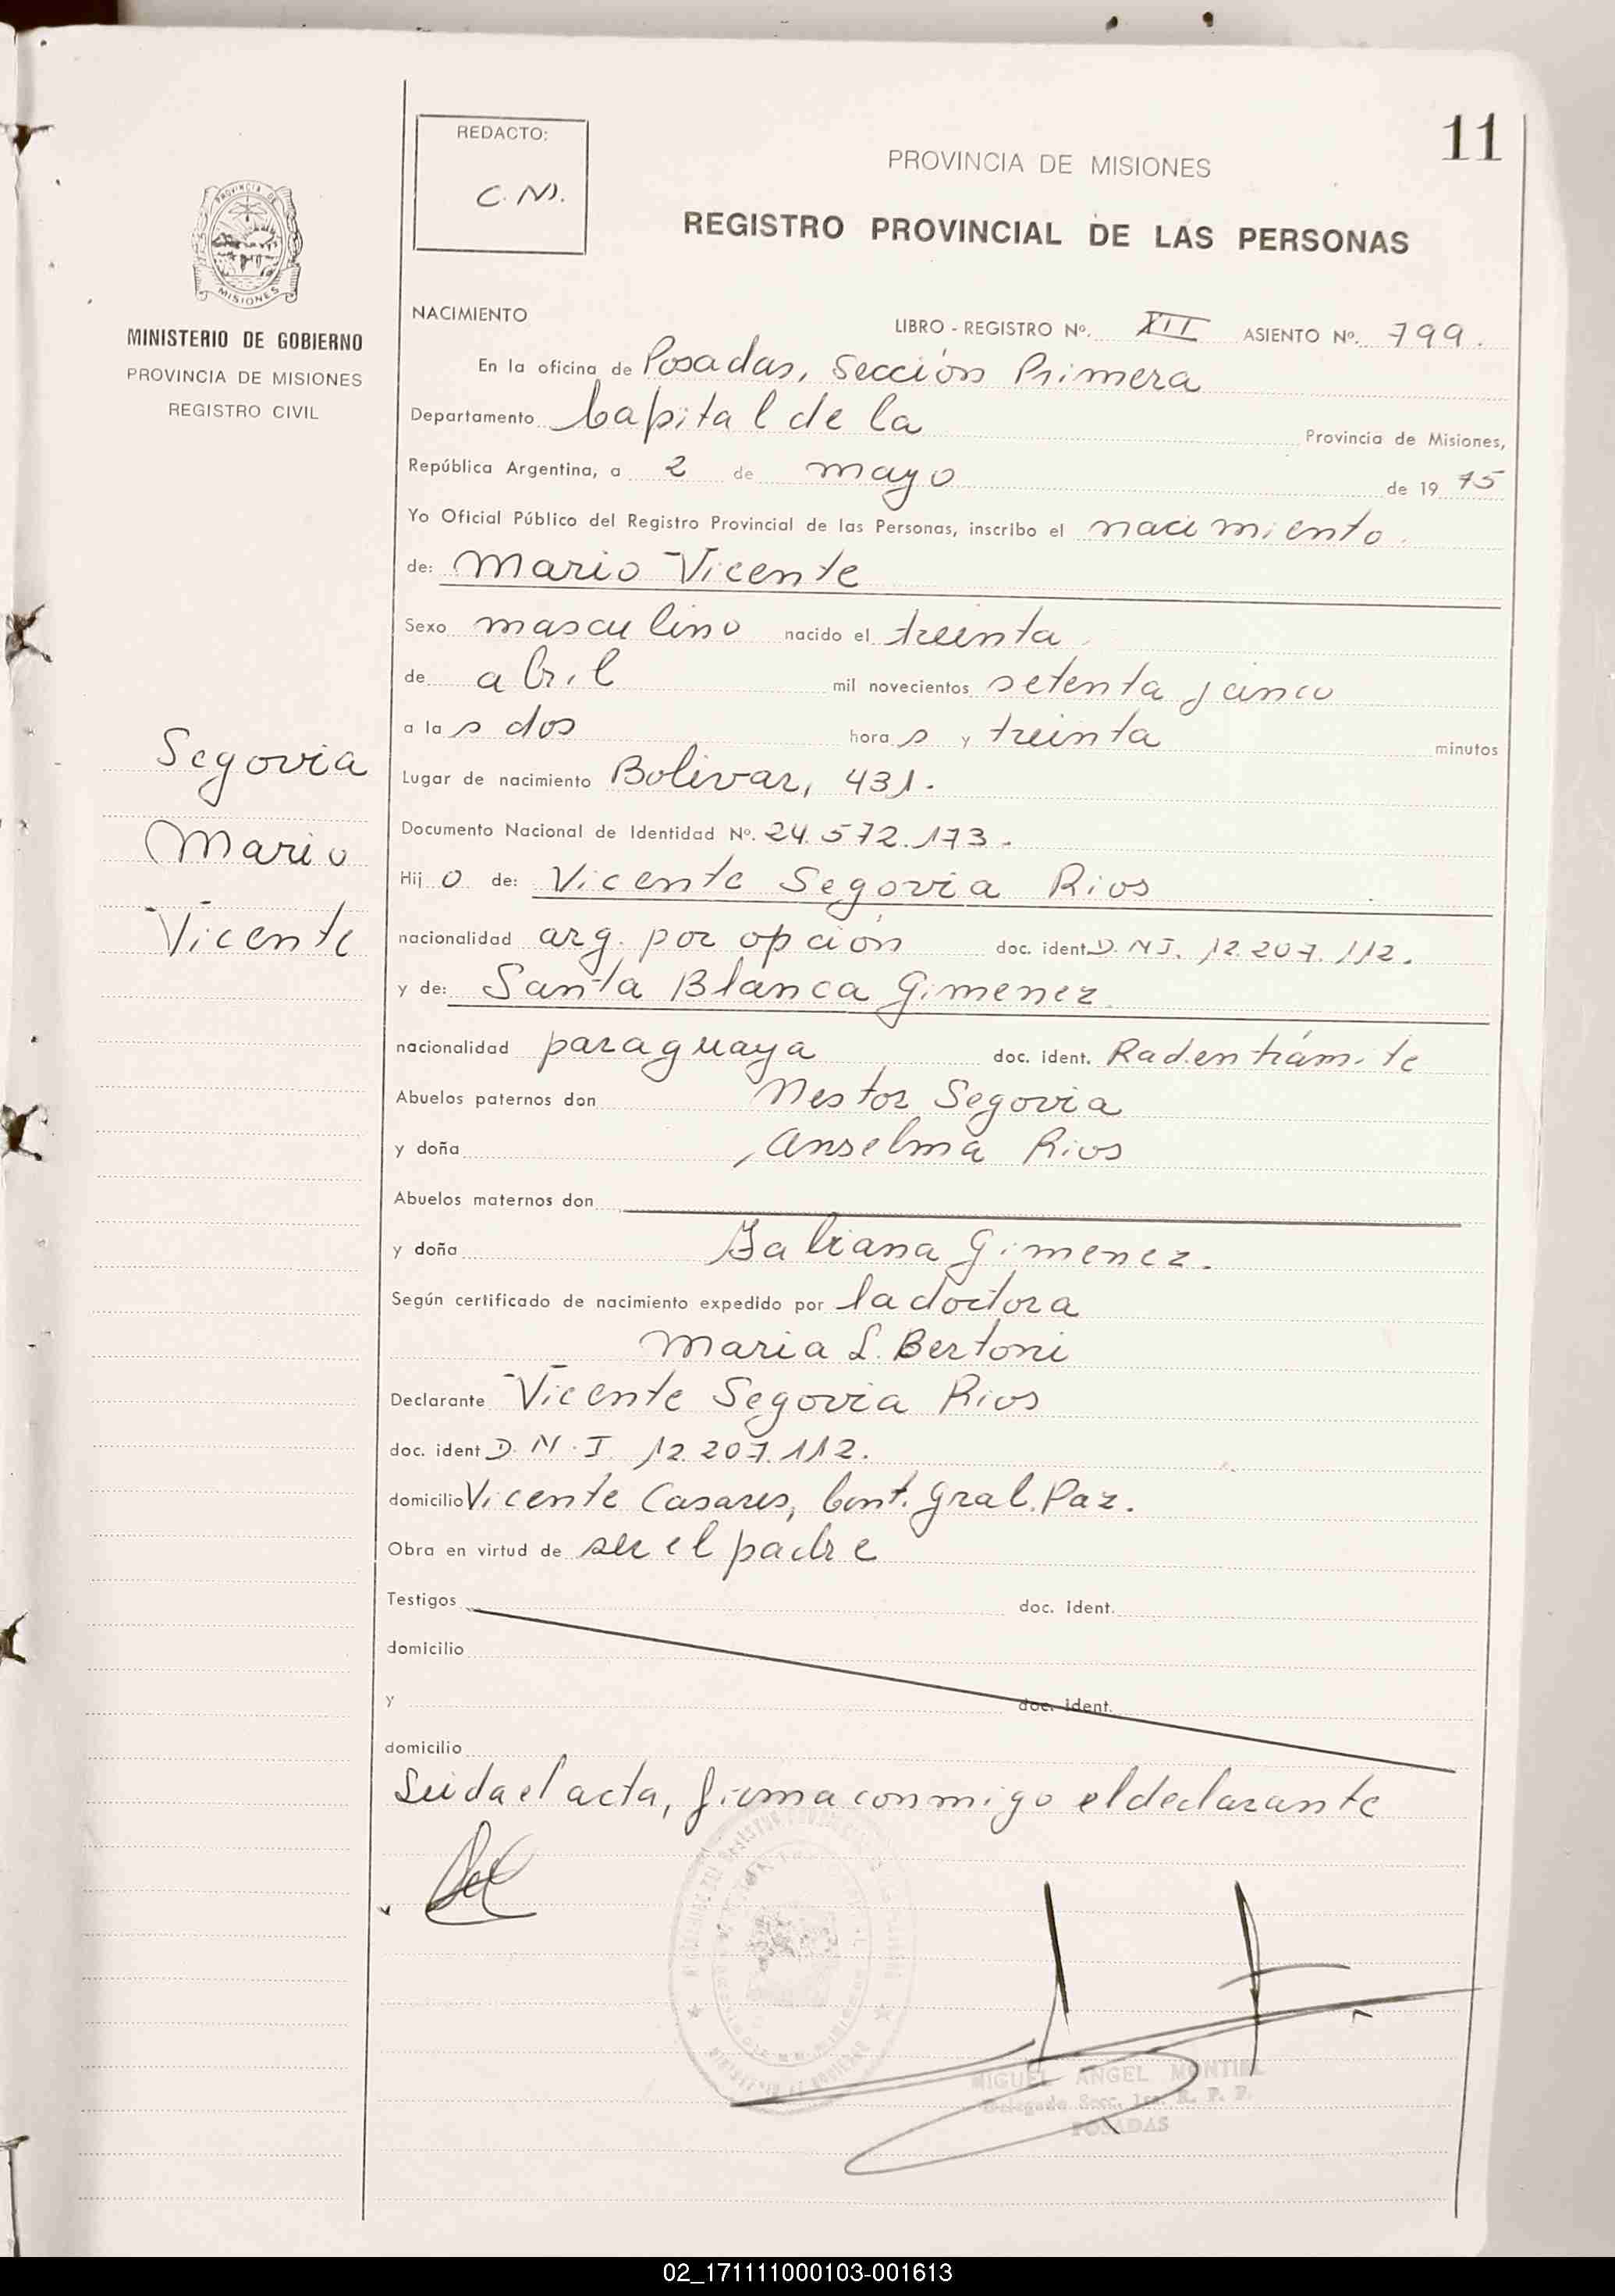 11
REDACTO:
C. N.
PROVINCIA DE MISIONES
REGISTRO PROVINCIAL DE LAS PERSONAS
PROVINCIA DE
MISIONES
MINISTERIO DE GOBIERNO
PROVINCIA DE MISIONES
REGISTRO CIVIL
Segovia
Mario
Vicente
NACIMIENTO
LIBRO - REGISTRO Nº. XII ASIENTO Nº. 799.
En la oficina de Posadas, Sección Primera
Departamento Capital de la Provincia de Misiones,
República Argentina, a 2 de mayo de 19 75
Yo Oficial Público del Registro Provincial de las Personas, inscribo el nacimiento.
de: Mario Vicente
Sexo masculino nacido el treinta
de abril mil novecientos setenta y cinco
a la s dos hora s y treinta minutos
Lugar de nacimiento Bolivar, 431.
Documento Nacional de Identidad Nº. 24.572.173.
Hij o de: Vicente Segovia Rios
nacionalidad arg. por opción doc. ident. D.N.I. 12.207.112.
y de: Santa Blanca Gimenez
nacionalidad paraguaya doc. ident. Rad. en trámite
Abuelos paternos don Nestor Segovia
y doña Anselma Rios
Abuelos maternos don
y doña Gimenez.
Según certificado de nacimiento expedido por la doctora
Maria L. Bertoni
Declarante Vicente Segovia Rios
doc. ident D.N.I. 12.207.112.
domicilio Vicente Casares, Cont. Gral. Paz.
Obra en virtud de ser el padre
Testigos doc. ident.
domicilio
y doc. ident.
domicilio
Leida el acta, firma conmigo el declarante
MIGUEL ANGEL MONTIEL
Delegado Secc. 1ra. R. P. P.
POSADAS
02_171111000103-001613